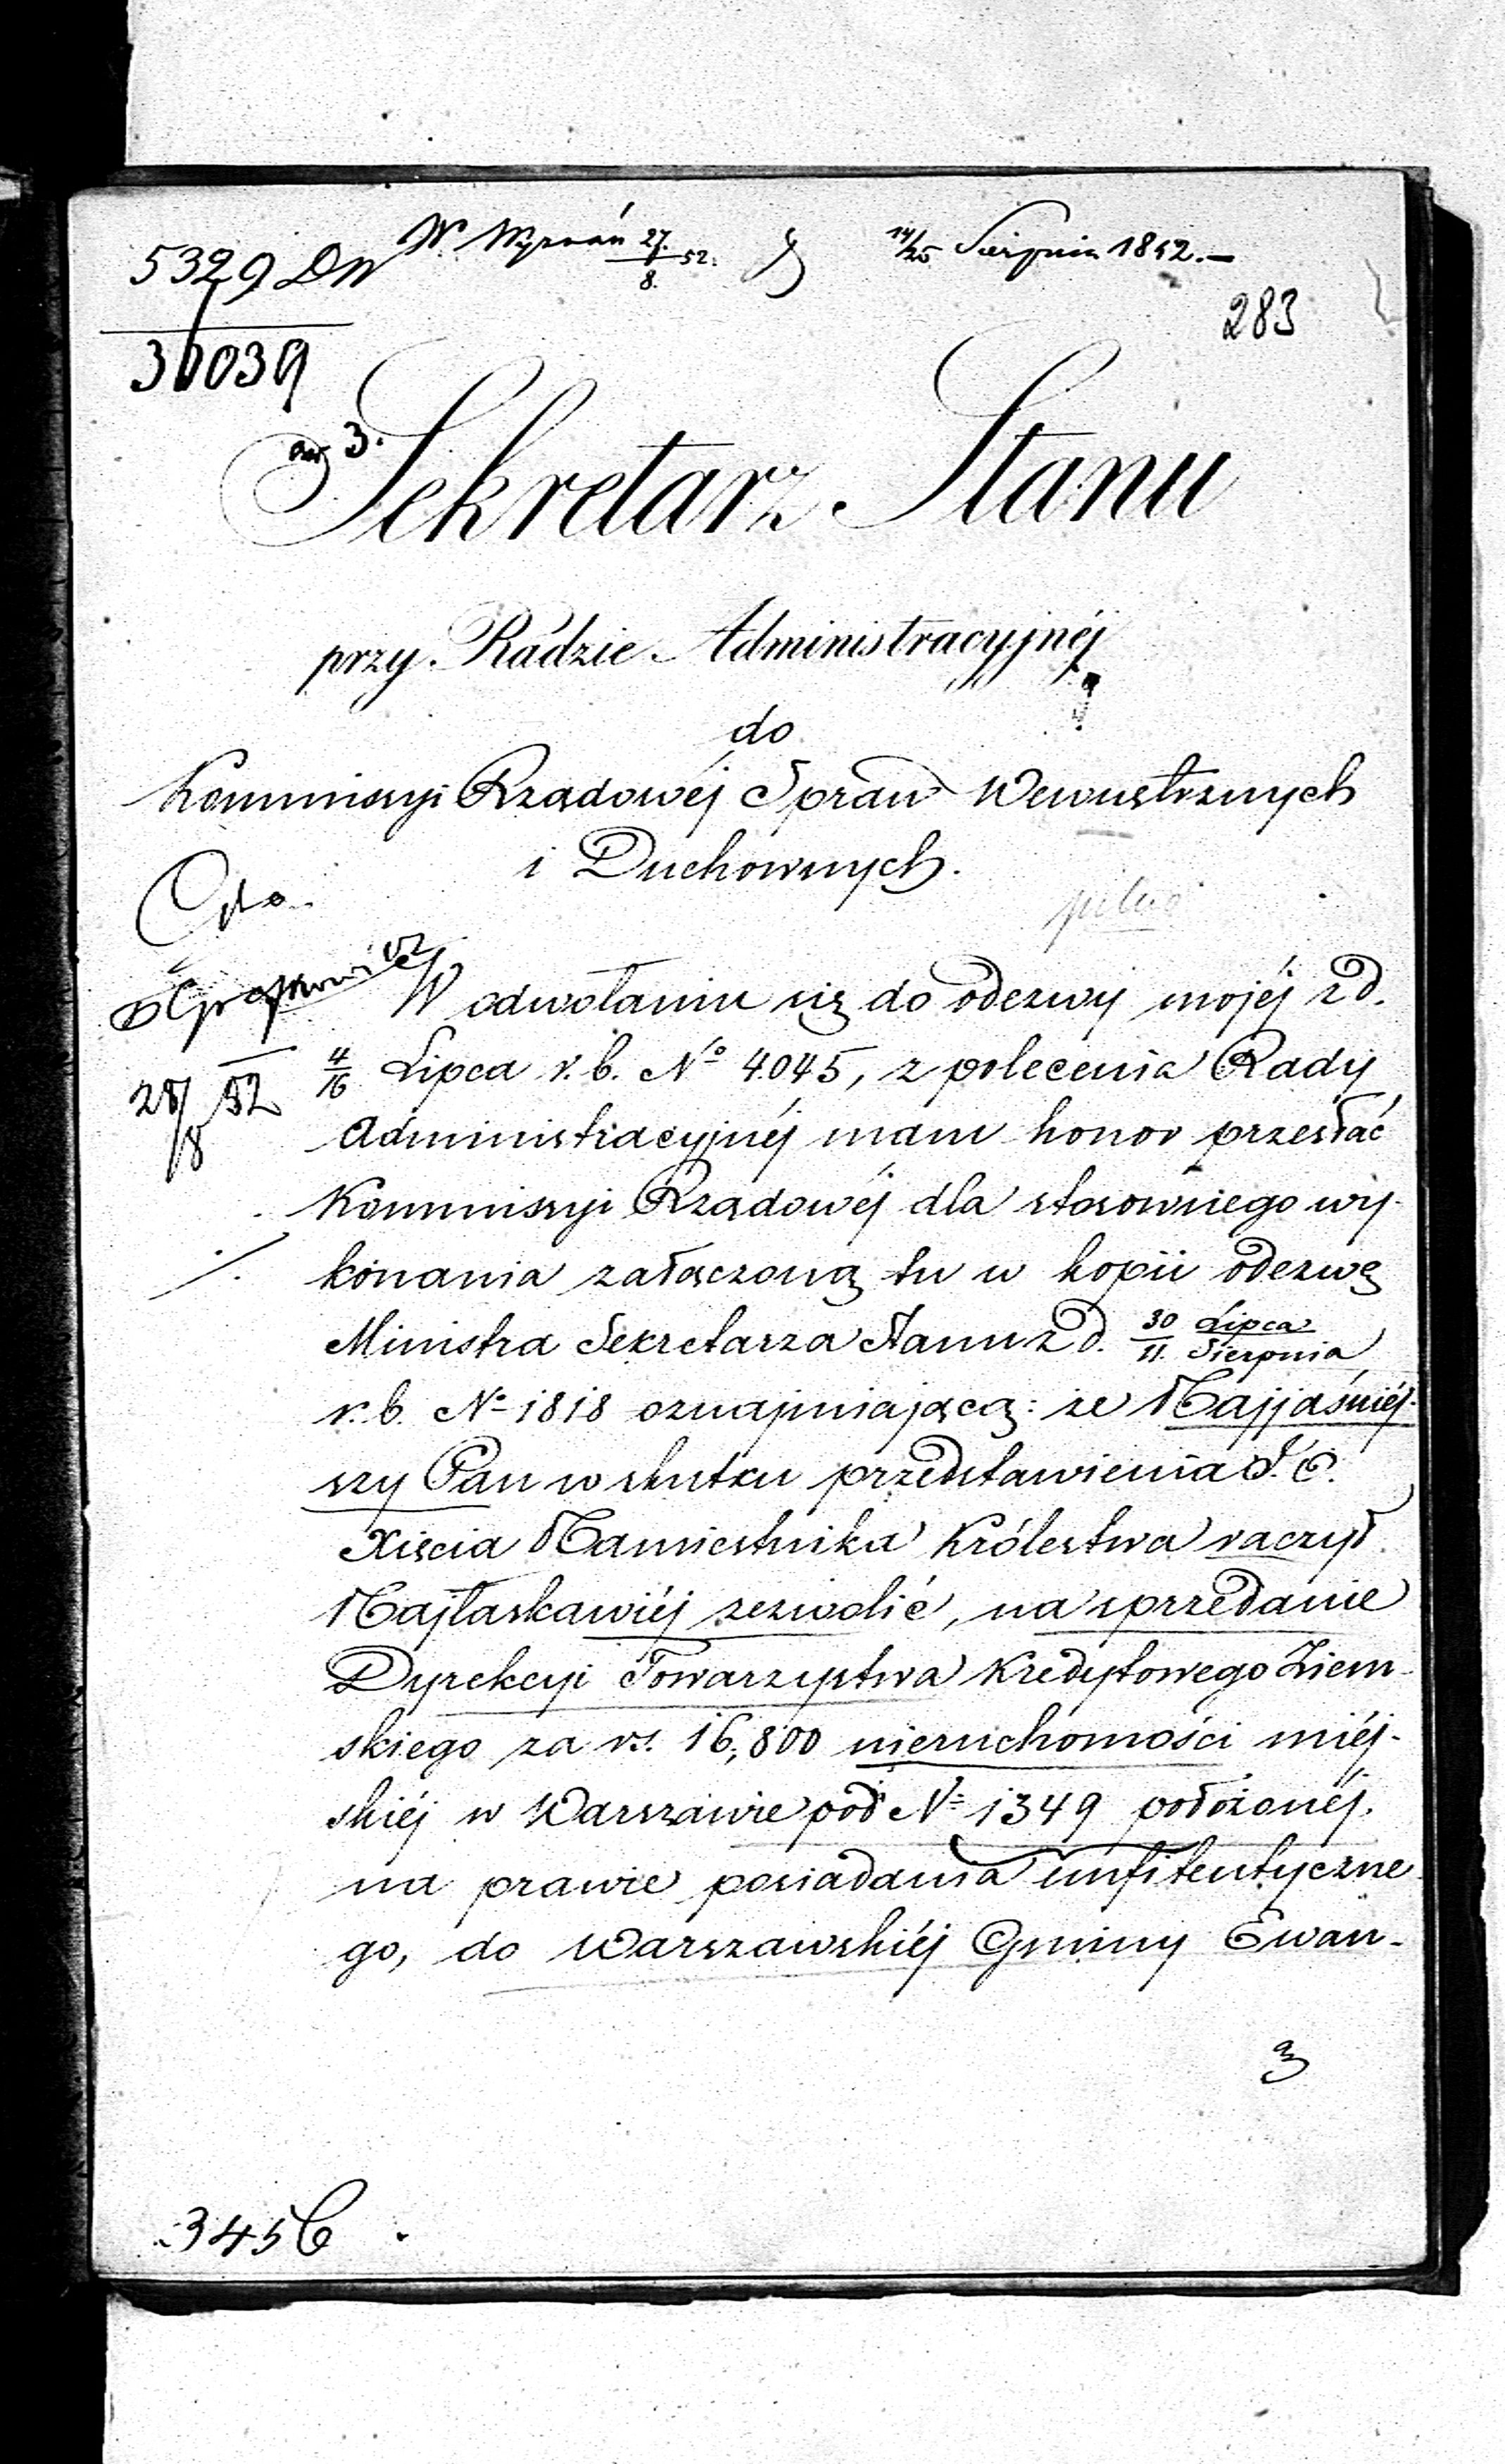 5329 DW
W. Wyznań 27/8 52.
14/25 Sierpnia 1852.
283
31039
3.
Sekretarz Stanu
przy Radzie Administracyjnéj
do
Kommissyi Rządowéj Spraw Wewnętrznych
i Duchownych.
pilno
W odwołaniu się do odezwy mojéj z d.
4/16 Lipca r. b. No 4045, z polecenia Rady
Administracyjnéj mam honor przesłać
Kommissyi Rządowéj dla stosownego wy-
konania załączoną tu w kopii odezwę
Ministra Sekretarza Stanu z d. 30 Lipca / 11 Sierpnia
r. b. No 1818 oznajmiającą: że Najjaśniéj-
szy Pan w skutku przedstawienia J. O.
Xięcia Namiestnika Królestwa raczył
Najłaskawiéj zezwolić, na sprzedanie
Dyrekcyi Towarzystwa Kredytowego Ziem-
skiego za rs. 16,800 nieruchomości miéj-
skiéj w Warszawie pod No 1349 położonéj,
na prawie posiadania emfiteutyczne
go, do Warszawskiéj Gminy Ewan-
28/8 52
3
3456